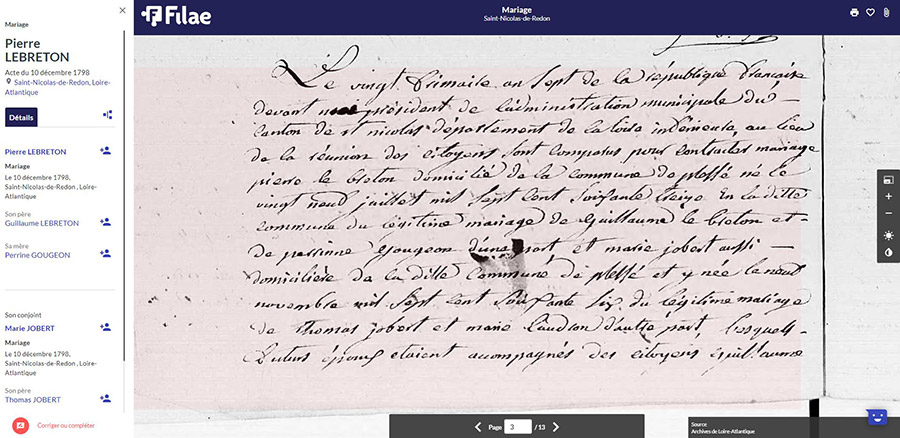 Mariage
Pierre
LEBRETON
Acte du 10 décembre 1798
Saint-Nicolas-de-Redon, Loire-
Atlantique
Détails
Pierre LEBRETON
Mariage
Le 10 décembre 1798,
Saint-Nicolas-de-Redon , Loire-
Atlantique
Son père
Guillaume LEBRETON
Sa mère
Perrine GOUGEON
Son conjoint
Marie JOBERT
Mariage
Le 10 décembre 1798,
Saint-Nicolas-de-Redon , Loire-
Atlantique
Son père
Thomas JOBERT
Corriger ou compléter
Filae
Mariage
Saint-Nicolas-de-Redon
Le vingt frimaire an sept de la république francaise
devant président de l'administration municipale du
Canton de st nicolas département de la loire inferieure, au lieu
de la réunion des citoyens sont comparus pour contracter mariage
pierre le breton domicilié de la commune de plessé né le
vingt neuf juillet mil sept cent soixante treize en la ditte
commune du légitime mariage de Guillaume le breton et
de perrinne Gougeon d'une part et marie jobert aussi
domicilière de la ditte Commune de plessé et y née le neuf
novembre mil sept cent soixante six du légitime mariage
de Thomas jobert et marie d'autre part, lesquels
futurs époux etoient accompagnés des citoyens guillaume
Page 3 / 13
Source
Archives de Loire-Atlantique